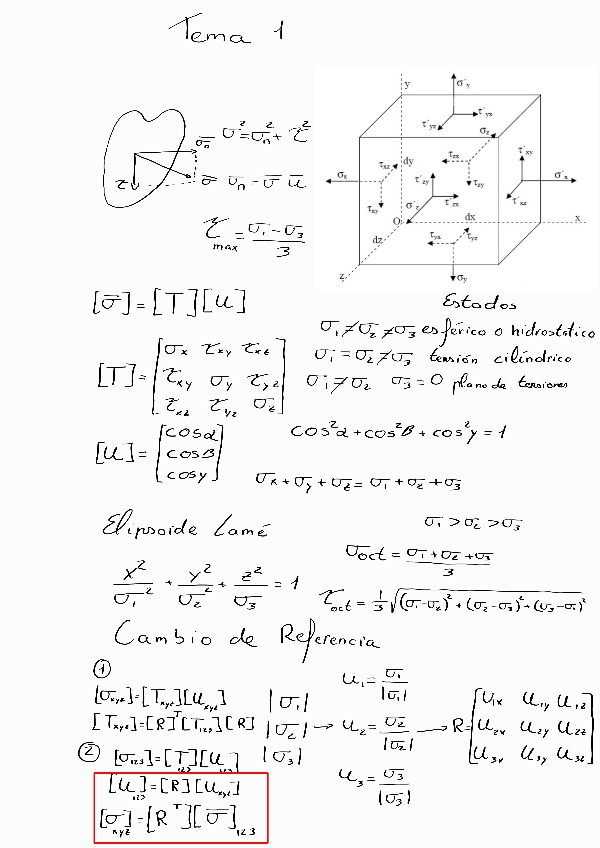 Tema 1
σ² = σn² + τ²
σn
τ
σ
σn = σ u
τmax = (σ1 - σ3)/3
y
σ'y
τ'yx
τ'yz
σz
τxz
dy
τzx
τ'xy
σx
τ'zy
τzy
σ'x
τxy
σ'z
τ'zx
τ'xz
O
dx
x
τyx
τyz
dz
z
σy
[σ] = [T][u]
Estados
σ1 ≠ σ2 ≠ σ3 esférico o hidrostático
σ1 = σ2 ≠ σ3 tensión cilíndrico
σ1 ≠ σ2 σ3 = 0 plano de tensiones
[T] = [σx τxy τxz
τxy σy τyz
τxz τyz σz]
[u] = [cosα
cosβ
cosγ]
cos²α + cos²β + cos²γ = 1
σx + σy + σz = σ1 + σ2 + σ3
Elipsoide Lamé
σ1 > σ2 > σ3
σoct = (σ1 + σ2 + σ3)/3
x²/σ1² + y²/σ2² + z²/σ3 = 1
τoct = 1/3 √((σ1-σ2)² + (σ2-σ3)² + (σ3-σ1)²)
Cambio de Referencia
①
[σxyz] = [Txyz][uxyz]
[Txyz] = [R]ᵀ[T123][R]
|σ1|
|σ2| →
|σ3|
u1 = σ1/|σ1|
u2 = σ2/|σ2| →
u3 = σ3/|σ3|
R = [u1x u1y u1z
u2x u2y u2z
u3x u3y u3z]
② [σ123] = [T]123[u]123
[u]123 = [R][uxyz]
[σ]xyz = [Rᵀ][σ]123